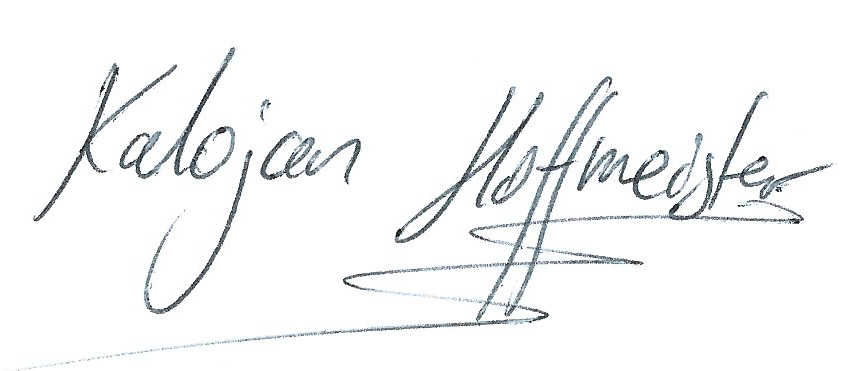 Kalojan Hoffmeister